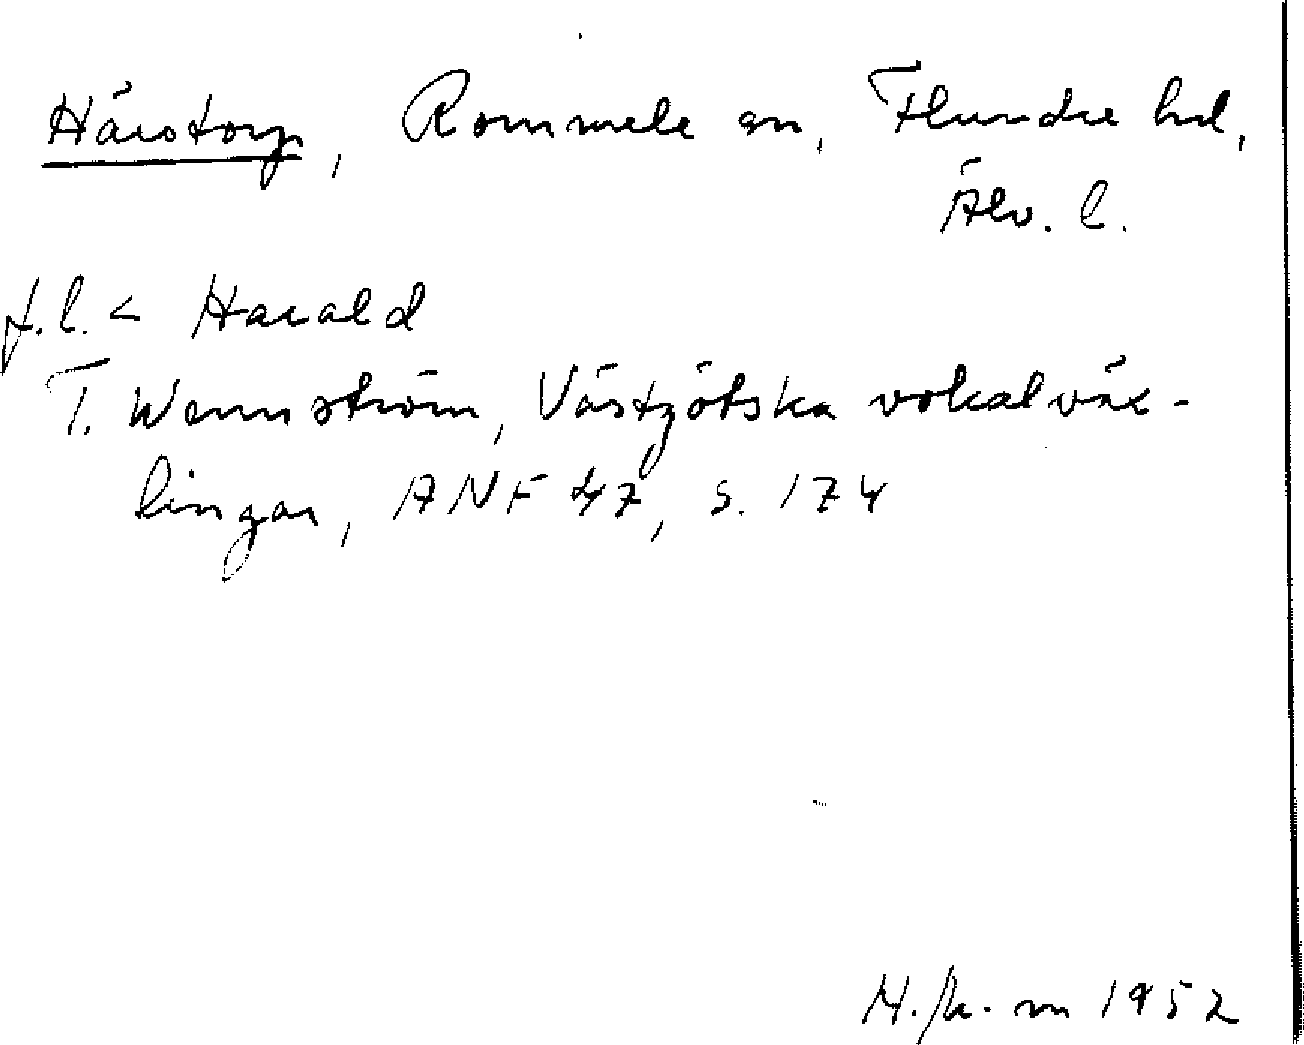 Härstorp, Rommele sn, Flundre hd,
Älv. l.
f.l. < Harald
T. Wennström, Västgötska vokalväx-
lingar, ANF 47, s. 174
1952